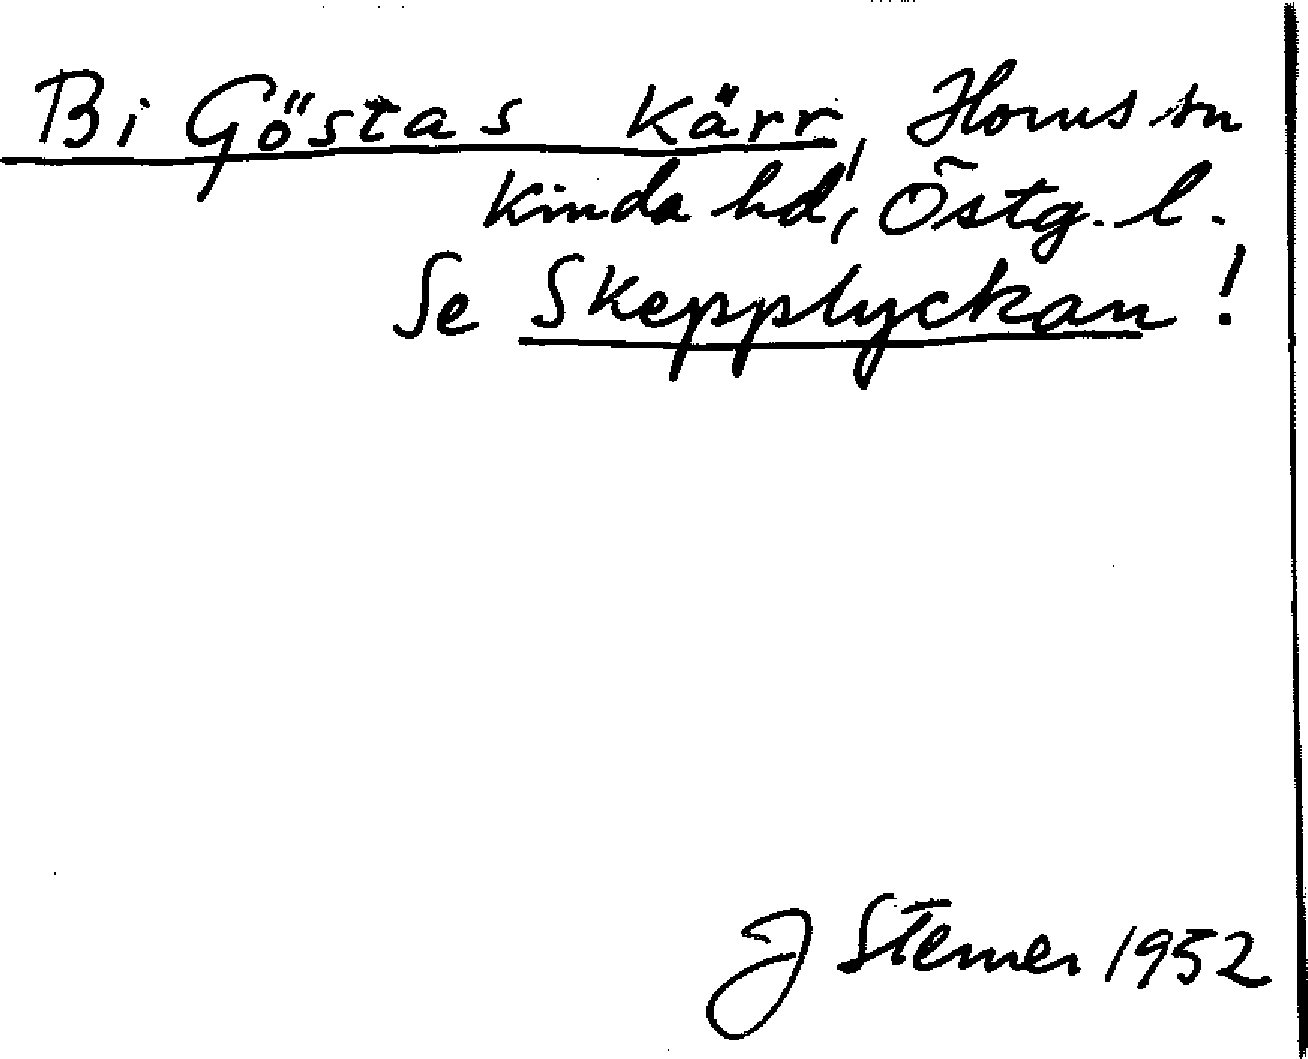 Bi Göstas Kärr, Horns sn
Kinda hd, Östg. l.
Se Skepplyckan!
J Sterner 1952